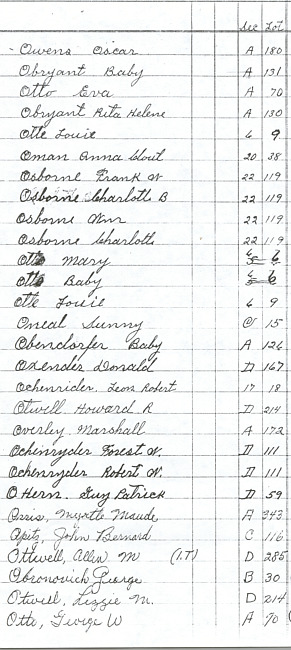 Sec Lot
Owens Oscar A 180
Obryant Baby A 131
Otto Eva A 70
Obryant Rita Helene A 130
Otte Louie 6 9
Oman Anna Clout 20 38
Osborne Frank W 22 119
Osborne Charlotte B 22 119
Osborne Wm 22 119
Osborne Charlotte 22 119
Otto Mary 6
Otto Baby 6
Otte Louie 6 9
Oneal Sunny C 15
Obendorfer Baby A 126
Oxender Donald D 167
Ochenrider, Leon Robert 17 18
Otwell Howard R D 214
Overley, Marshall A 172
Ochenryder Forest W. D 111
Ochenryder Robert W. D 111
O Hern. Guy Patrick D 59
Orris, Myrtle Maude A 343
Opitz, John Bernard C 116
Ottwell, Allen M (I.T) D 285
Obronovich George B 30
Otwell, Lizzie M. D 214
Otto, George W A 70